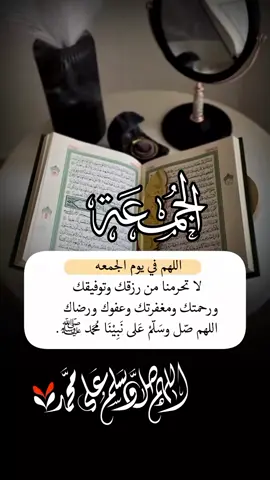 الجُمُعَة
اللهم في يوم الجمعه
لا تحرمنا من رزقك وتوفيقك
ورحمتك ومغفرتك وعفوك ورضاك
اللهم صَل وسَلّمْ عَلى نَبِيْنَا مُحمد ﷺ .
اللهم صل وسلم على محمد